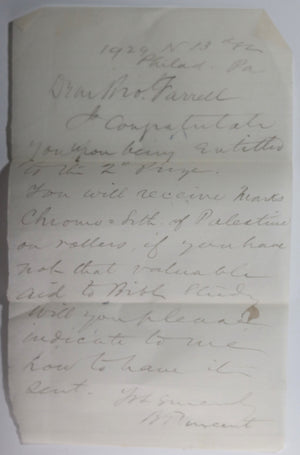 1929 N 13th St
Philad. Pa
Dear Bro. Farrell
I Congratulate
you upon being Entitled
to the 2nd Prize.
You will receive
Chromo = Lith. of Palestine
on rollers, if you have
not that valuable
aid to Bible Study
Will you please
indicate to me
how to have it
sent.
B Vincent